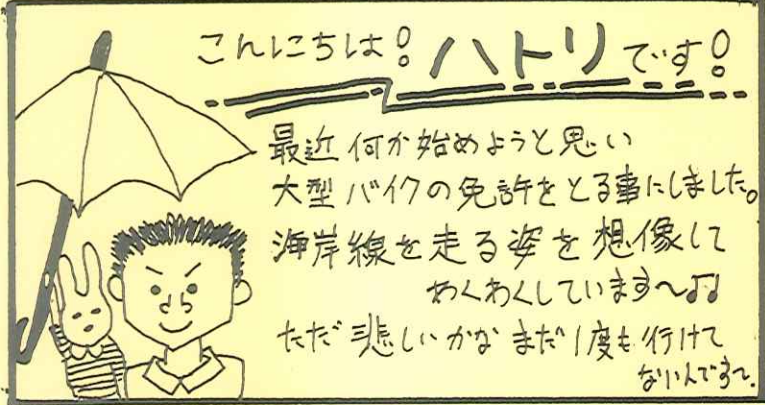 こんにちは！ハトリです！
最近何か始めようと思い
大型バイクの免許をとる事にしました。
海岸線を走る姿を想像して
わくわくしています～♫
ただ悲しいかなまだ1度も行けて
ないんですっ。